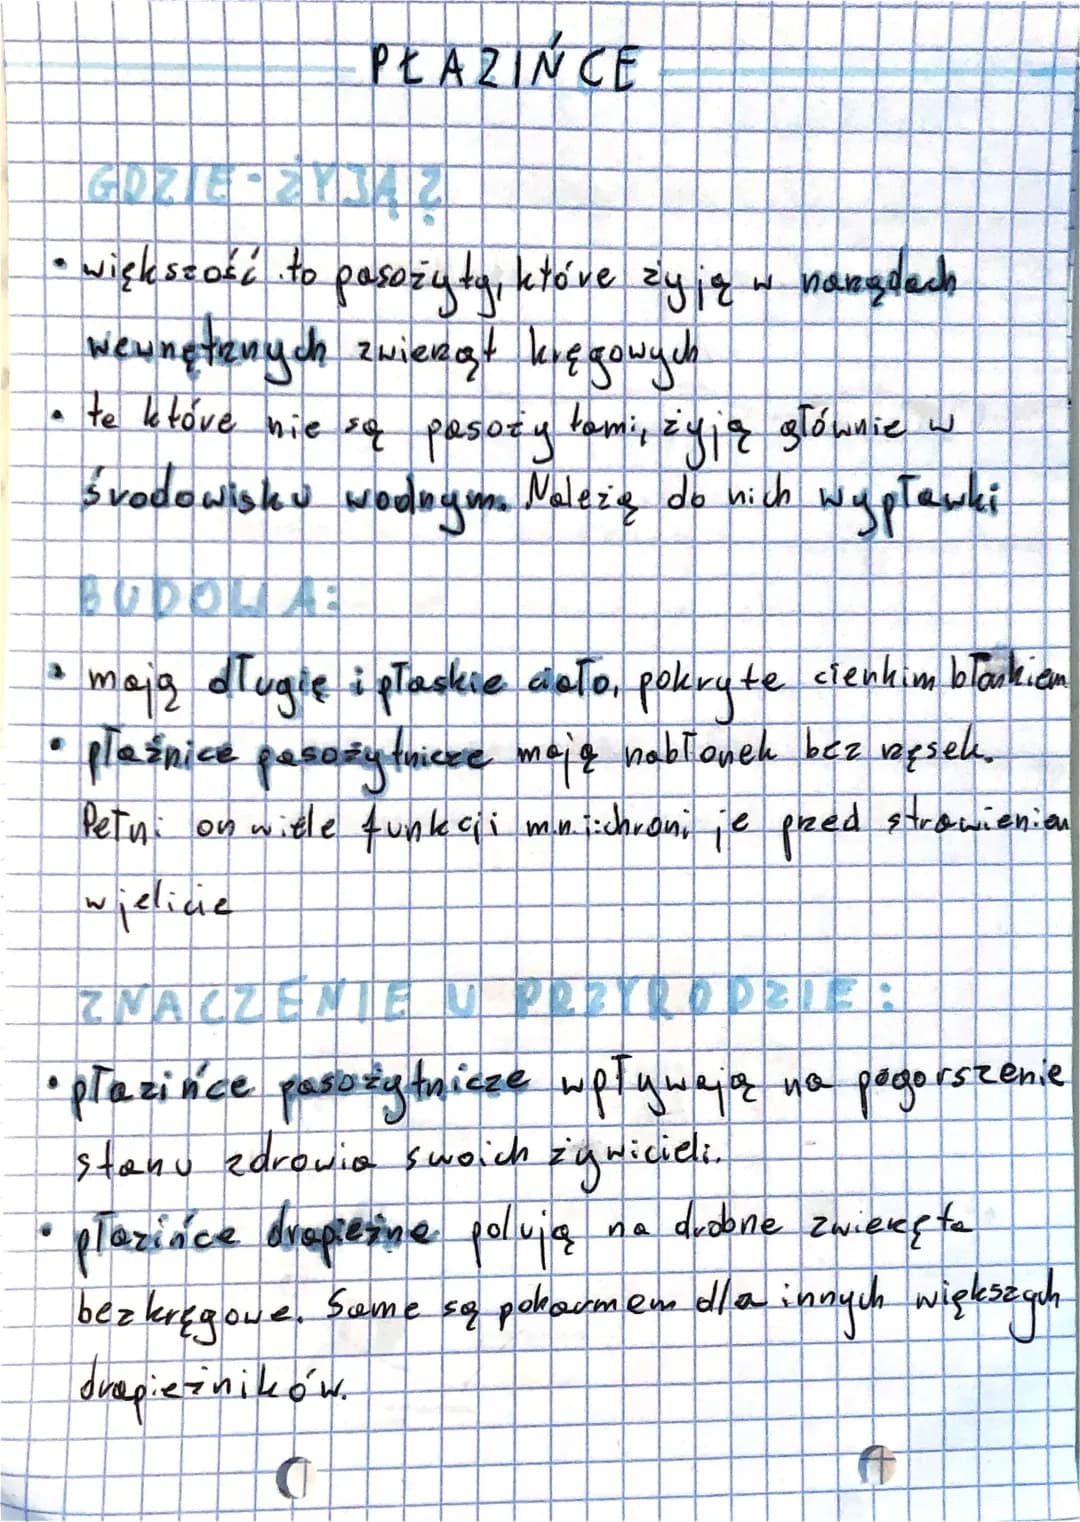 PŁAZIŃCE
GDZIE ŻYJĄ?
• większość to pasożyty, które żyją w narządach
wewnętrznych zwierząt kręgowych
• te które nie są pasożytami, żyją głównie w
środowisku wodnym. Należą do nich wypławki
BUDOWA:
• mają długię i płaskie ciało, pokryte cienkim błonkiem
• płaźnice pasożytnicze mają nabłonek bez rzęsek.
Pełni on wiele funkcji m.n.i: chroni je przed strawieniem
w jelicie
ZNACZENIE W PRZYRODZIE:
• płazińce pasożytnicze wpływają na pogorszenie
stanu zdrowia swoich żywicieli.
• płazińce drapieżne polują na drobne zwierzęta
bezkręgowe. Same są pokarmem dla innych większych
drapieżników.